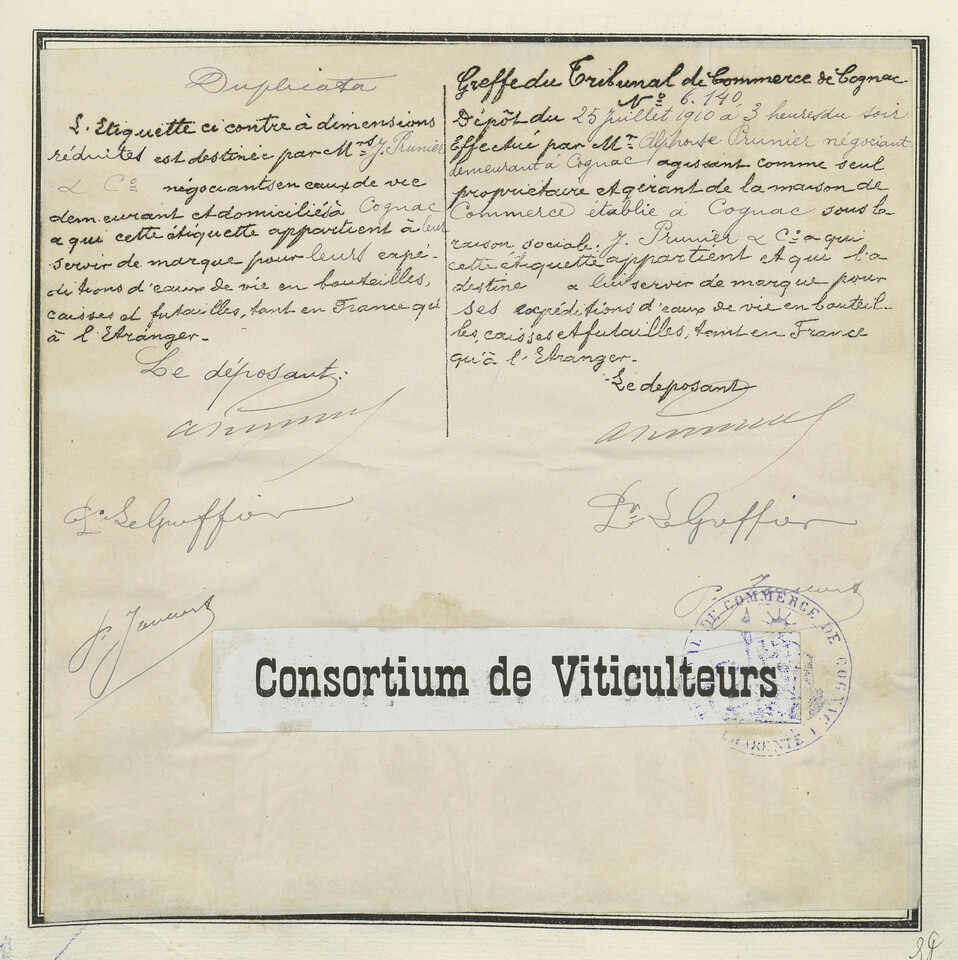 Duplicata
L'Etiquette ci contre à dimensions
réduites est destinée par Mrs J. Prunier
& Co négociants en eaux de vie
demeurant et domiciliés à Cognac
a qui cette étiquette appartient à leur
servir de marque pour leurs expé-
ditions d'eaux de vie en bouteilles,
caisses et futailles, tant en France qu'
à l'Etranger.
Le déposant:
APrunier
Pr Le Greffier
Greffe du Tribunal de Commerce de Cognac
No 6.140
Dépôt du 25 juillet 1910 à 3 heures du soir
Effectué par Mr Alphonse Prunier négociant
demeurant à Cognac agissant comme seul
propriétaire et gérant de la maison de
Commerce établie à Cognac sous la
raison sociale: J. Prunier & Co a qui
cette étiquette appartient et qui l'a
destine a lui servir de marque pour
ses expéditions d'eaux de vie en bouteil-
les, caisses et futailles, tant en France
qu'à l'Etranger.
Le deposant
APrunier
Pr Le Greffier
Consortium de Viticulteurs
TRIBUNAL DE COMMERCE DE COGNAC
CHARENTE